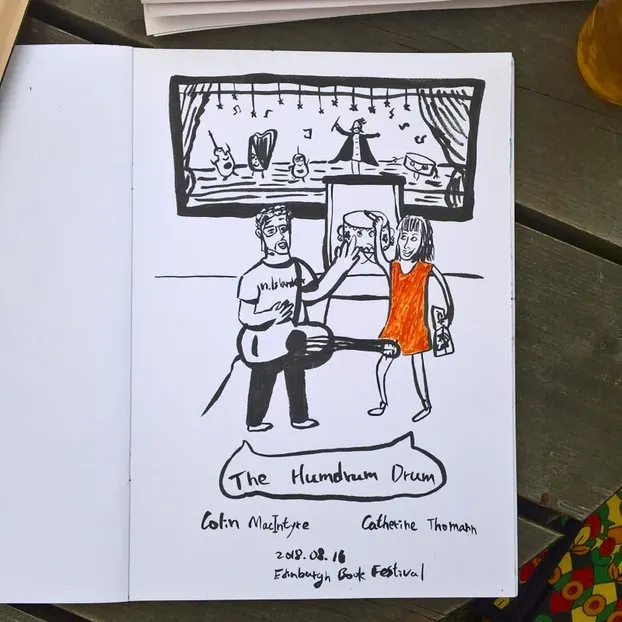 The Humdrum Drum
Colin MacIntyre
Catherine Thomann
2018.08.16
Edinburgh Book Festival